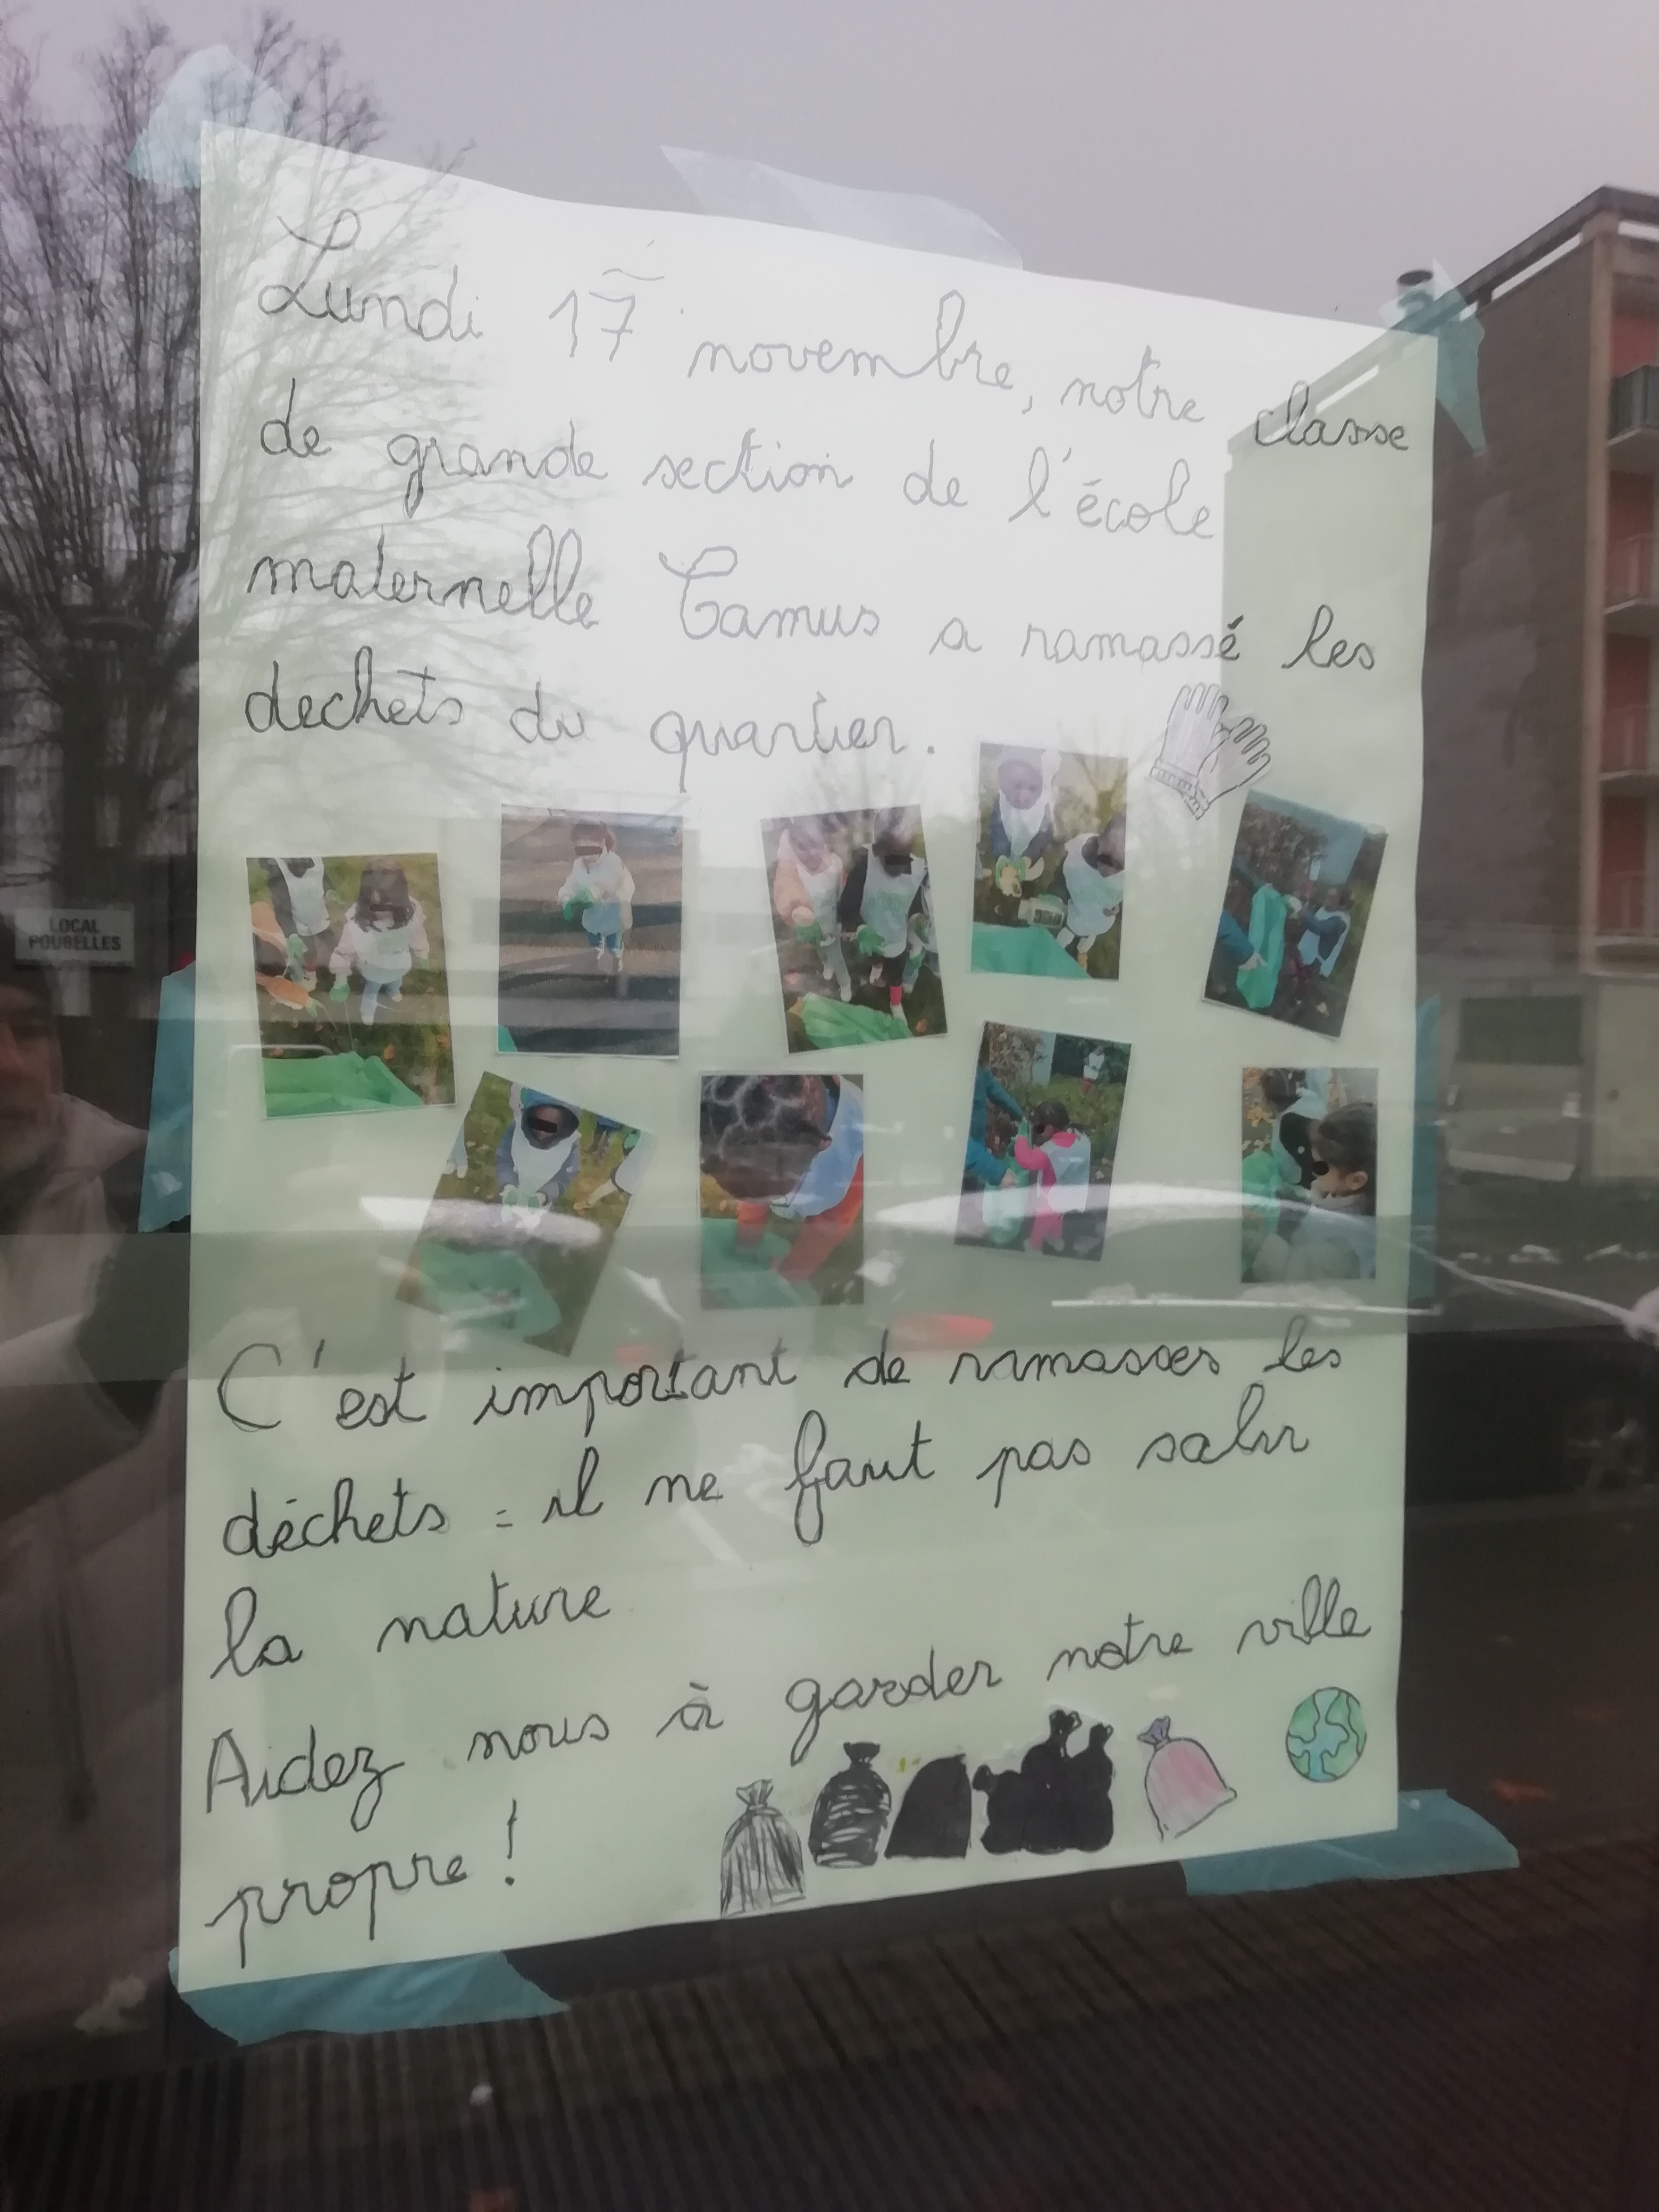 Lundi 17 novembre, notre classe
de grande section de l'école
maternelle Camus a ramassé les
dechets du quartier.
LOCAL
POUBELLES
C'est important de ramasser les
déchets : il ne faut pas salir
la nature
Aidez nous à garder notre ville
propre !